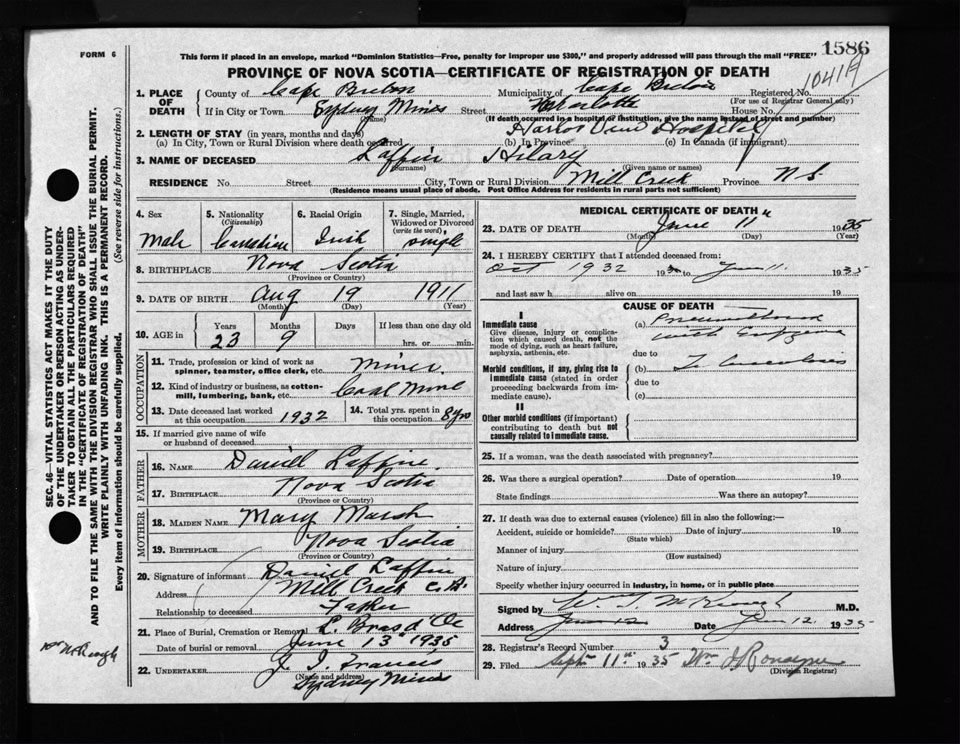 FORM 6
This form if placed in an envelope, marked "Dominion Statistics—Free, penalty for improper use $300," and properly addressed will pass through the mail "FREE"
1586
PROVINCE OF NOVA SCOTIA—CERTIFICATE OF REGISTRATION OF DEATH
1041A
1. PLACE OF DEATH County of Cape Breton Municipality of Cape Breton Registered No.
(For use of Registrar General only)
If in City or Town Sydney Mines Street House No.
(Name) (If death occurred in a hospital or institution, give the name instead of street and number)
2. LENGTH OF STAY (in years, months and days) Harbor View Hospital
(a) In City, Town or Rural Division where death occurred (b) In Province (c) In Canada (if immigrant)
3. NAME OF DECEASED Laffin Hilary
(Surname) (Given name or names)
RESIDENCE No. Street City, Town or Rural Division Mill Creek Province N.S.
(Residence means usual place of abode. Post Office Address for residents in rural parts not sufficient)
4. Sex Male
5. Nationality (Citizenship) Canadian
6. Racial Origin Irish
7. Single, Married, Widowed or Divorced (write the word) single
8. BIRTHPLACE Nova Scotia
(Province or Country)
9. DATE OF BIRTH Aug 19 1911
(Month) (Day) (Year)
10. AGE in Years 23 Months 9 Days If less than one day old hrs. or min.
OCCUPATION
11. Trade, profession or kind of work as spinner, teamster, office clerk, etc. Miner
12. Kind of industry or business, as cotton-mill, lumbering, bank, etc. Coal Mine
13. Date deceased last worked at this occupation 1932
14. Total yrs. spent in this occupation 8 yrs
15. If married give name of wife or husband of deceased
FATHER
16. NAME Daniel Laffin
17. BIRTHPLACE Nova Scotia
(Province or Country)
MOTHER
18. MAIDEN NAME Mary Marsh
19. BIRTHPLACE Nova Scotia
(Province or Country)
20. Signature of informant Daniel Laffin
Address Mill Creek C.B.
Relationship to deceased Father
21. Place of Burial, Cremation or Removal L. Bras d'Or
Date of burial or removal June 13 1935
22. UNDERTAKER J. J. Francis
(Name and address)
Sydney Mines
MEDICAL CERTIFICATE OF DEATH
23. DATE OF DEATH June 11 1935
(Month) (Day) (Year)
24. I HEREBY CERTIFY that I attended deceased from:
Oct 1932 19 to June 11 1935
and last saw h alive on 19
CAUSE OF DEATH
I
Immediate cause
Give disease, injury or complication which caused death, not the mode of dying, such as heart failure, asphyxia, asthenia, etc.
(a) Pneumothorax
with
due to
Morbid conditions, if any, giving rise to immediate cause (stated in order proceeding backwards from immediate cause).
(b) Tuberculosis
due to
(c)
II
Other morbid conditions (if important) contributing to death but not causally related to immediate cause.
25. If a woman, was the death associated with pregnancy?
26. Was there a surgical operation? Date of operation 19
State findings Was there an autopsy?
27. If death was due to external causes (violence) fill in also the following:—
Accident, suicide or homicide? Date of injury 19
(State which)
Manner of injury
(How sustained)
Nature of injury
Specify whether injury occurred in industry, in home, or in public place
Signed by M.D.
Address June 12 Date June 12 1935
28. Registrar's Record Number 3
29. Filed Sept 11th 1935
(Division Registrar)
SEC. 46—VITAL STATISTICS ACT MAKES IT THE DUTY
OF THE UNDERTAKER OR PERSON ACTING AS UNDER-
TAKER TO OBTAIN ALL THE PARTICULARS REQUIRED
IN THE "CERTIFICATE OF REGISTRATION OF DEATH"
AND TO FILE THE SAME WITH THE DIVISION REGISTRAR WHO SHALL ISSUE THE BURIAL PERMIT.
WRITE PLAINLY WITH UNFADING INK. THIS IS A PERMANENT RECORD.
Every item of information should be carefully supplied. (See reverse side for instructions.)